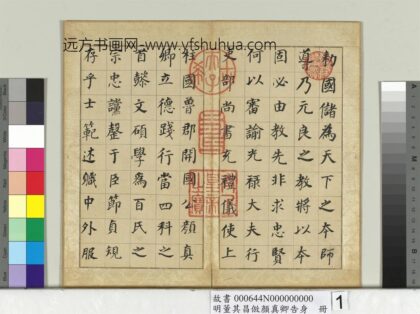 远方书画网-www.yfshuhua.com
勑國儲為天下之本師
導乃元良之教將以本
固必由教先非求忠賢
何以審諭光祿大夫行
吏部尚書充禮儀使上
柱國魯郡開國公顏真
卿立德踐行當四科之
首懿文碩學為百氏之
宗忠讜罄于臣節貞規
存乎士範述職中外服
故書 000644N000000000
明董其昌倣顏真卿告身 冊
1